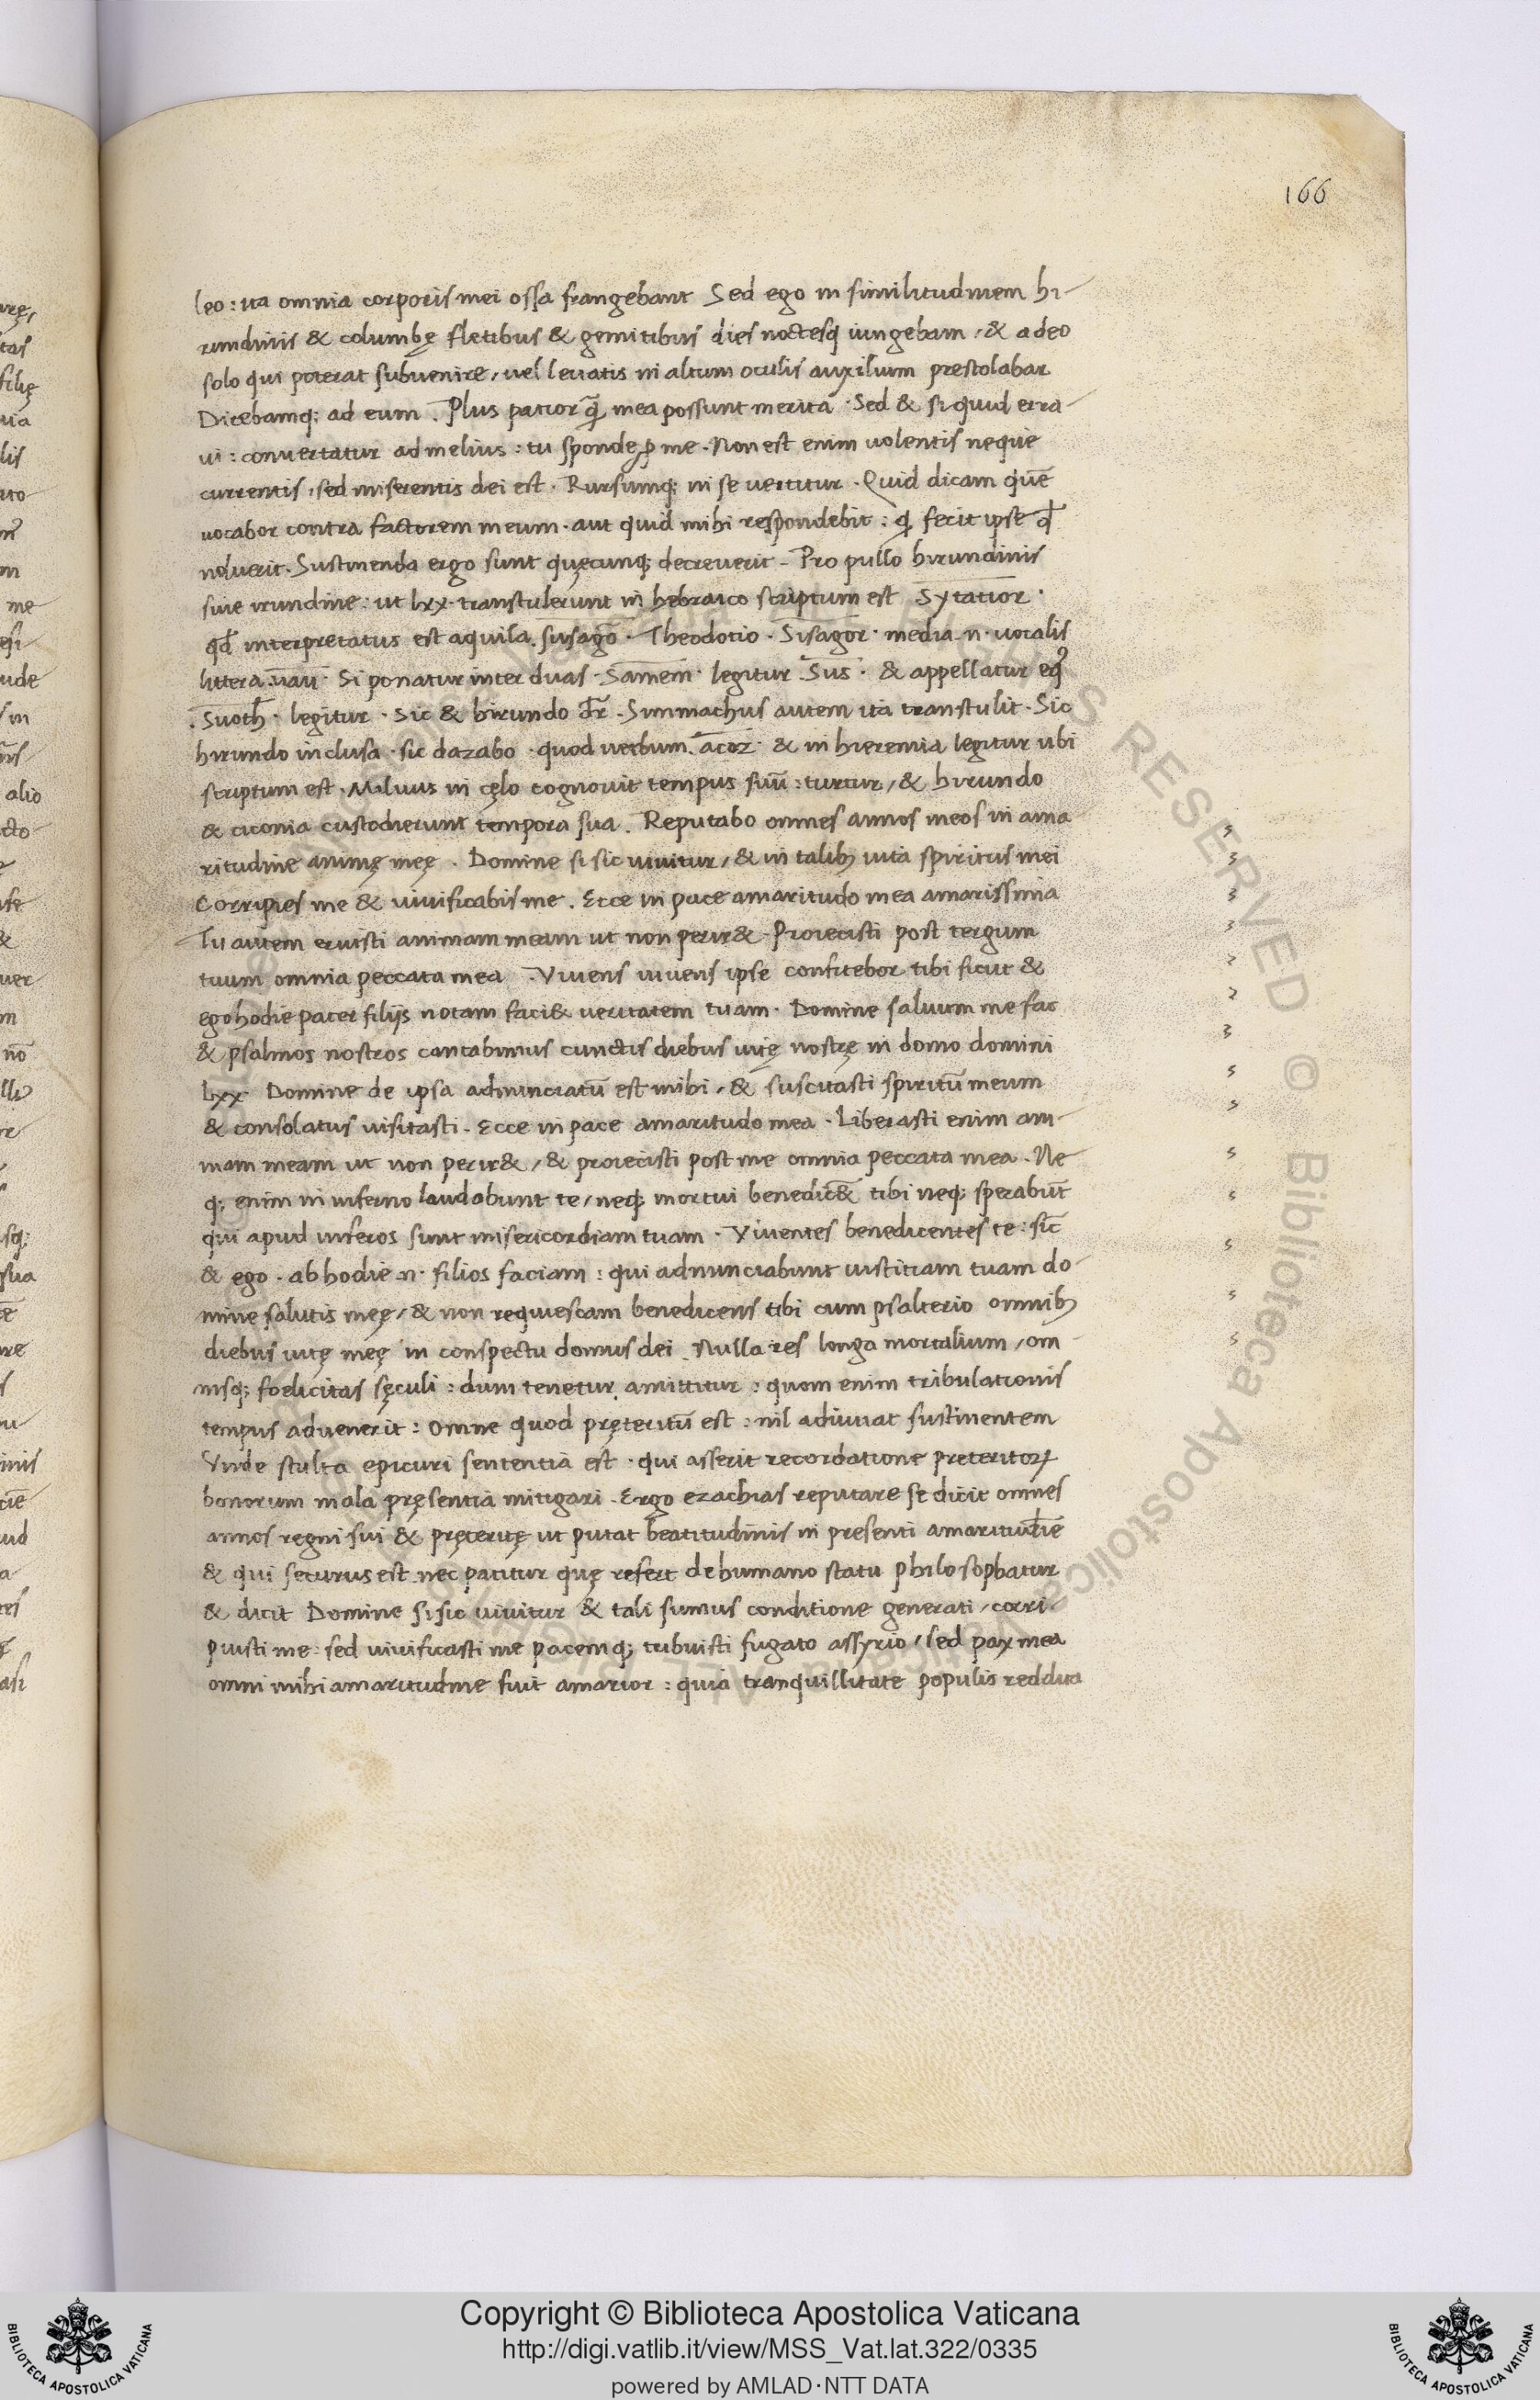 166
leo: ita omnia corporis mei ossa frangebant Sed ego in similitudinem hi-
rundinis & columbę fletibus & gemitibus dies noctesq iungebam, & a deo
solo qui poterat subuenire, uel leuatis in altum oculis auxilium prestolabar
Dicebamq; ad eum. Plus patior q̃ mea possunt merita. Sed & si quid erra-
ui: conuertatur ad melius: tu sponde ꝓ me. Non est enim uolentis neque
currentis, sed miserentis dei est. Rursumq; in se uertitur. Quid dicam quẽ
uocabor contra factorem meum. aut quid mihi respondebit: ꝗ fecit ipse ꝗd
noluerit. Sustinenda ergo sunt quęcunq; decreuerit. Pro pullo hirundinis
siue irundine: ut lxx. transtulerunt in hebraico scriptum est Sytatior.
qd̃ interpretatus est aquila. susagō. Theodotio. Sisagor. media .n. uocalis
littera. uau. Si ponatur inter duas. Samem. legitur. Sus. & appellatur eqꝰ
.Suoth. legitur. Sic & hirundo dr̃. Simmachus autem ita transtulit. Sic
hirundo inclusa. sic dazabo. quod uerbum. acoz. & in hieremia legitur ubi
scriptum est. Miluus in cęlo cognouit tempus suũ: turtur, & hirundo
& ciconia custodierunt tempora sua. Reputabo omnes annos meos in ama
ritudine animę meę. Domine si sic uiuitur, & in talibꝫ uita spiritus mei
Corripies me & uiuificabis me. Ecce in pace amaritudo mea amarissima
Tu autem eruisti animam meam ut non perir&. Proiecisti post tergum
tuum omnia peccata mea. Viuens uiuens ipse confitebor tibi sicut &
ego hodie pater filijs notam faci& ueritatem tuam. Domine saluum me fac
& psalmos nostros cantabimus cunctis diebus uitę nostrę in domo domini
lxx Domine de ipsa adnunciatũ est mihi, & suscitasti spiritũ meum
& consolatus uisitasti. Ecce in pace amaritudo mea. Liberasti enim ani-
mam meam ut non perir&, & proiecisti post me omnia peccata mea. Ne
q; enim in inferno laudabunt te, neq; mortui benedic&̃ tibi neq; sperabũt
qui apud inferos sunt misericordiam tuam. Viuentes benedicentes te: sic̃
& ego. ab hodie .n. filios faciam: qui adnunciabunt iustitiam tuam do-
mine salutis meę, & non requiescam benedicens tibi cum psalterio omnibꝫ
diebus uitę meę in conspectu domus dei. Nulla res longa mortalium, om-
nisq; foelicitas sęculi: dum tenetur amittitur: quom enim tribulationis
tempus aduenerit: omne quod pręteritũ est: nil adiuuat sustinentem
Vnde stulta epicuri sententia est. qui asserit recordatione preteritoꝝ
bonorum mala pręsentia mitigari. Ergo ezachias reputare se dicit omnes
annos regni sui & pręteritę ut putat beatitudinis in presenti amaritudiẽ
& qui securus est nec patitur quę refert de humano statu philosophatur
& dicit Domine si sic uiuitur & tali sumus conditione generati, corri-
puisti me: sed uiuificasti me pacemq; tribuisti fugato assyrio, sed pax mea
omni mihi amaritudine fuit amarior: quia tranquillitate populis reddita
BIBLIOTECA APOSTOLICA VATICANA
Copyright © Biblioteca Apostolica Vaticana
http://digi.vatlib.it/view/MSS_Vat.lat.322/0335
powered by AMLAD·NTT DATA
BIBLIOTECA APOSTOLICA VATICANA